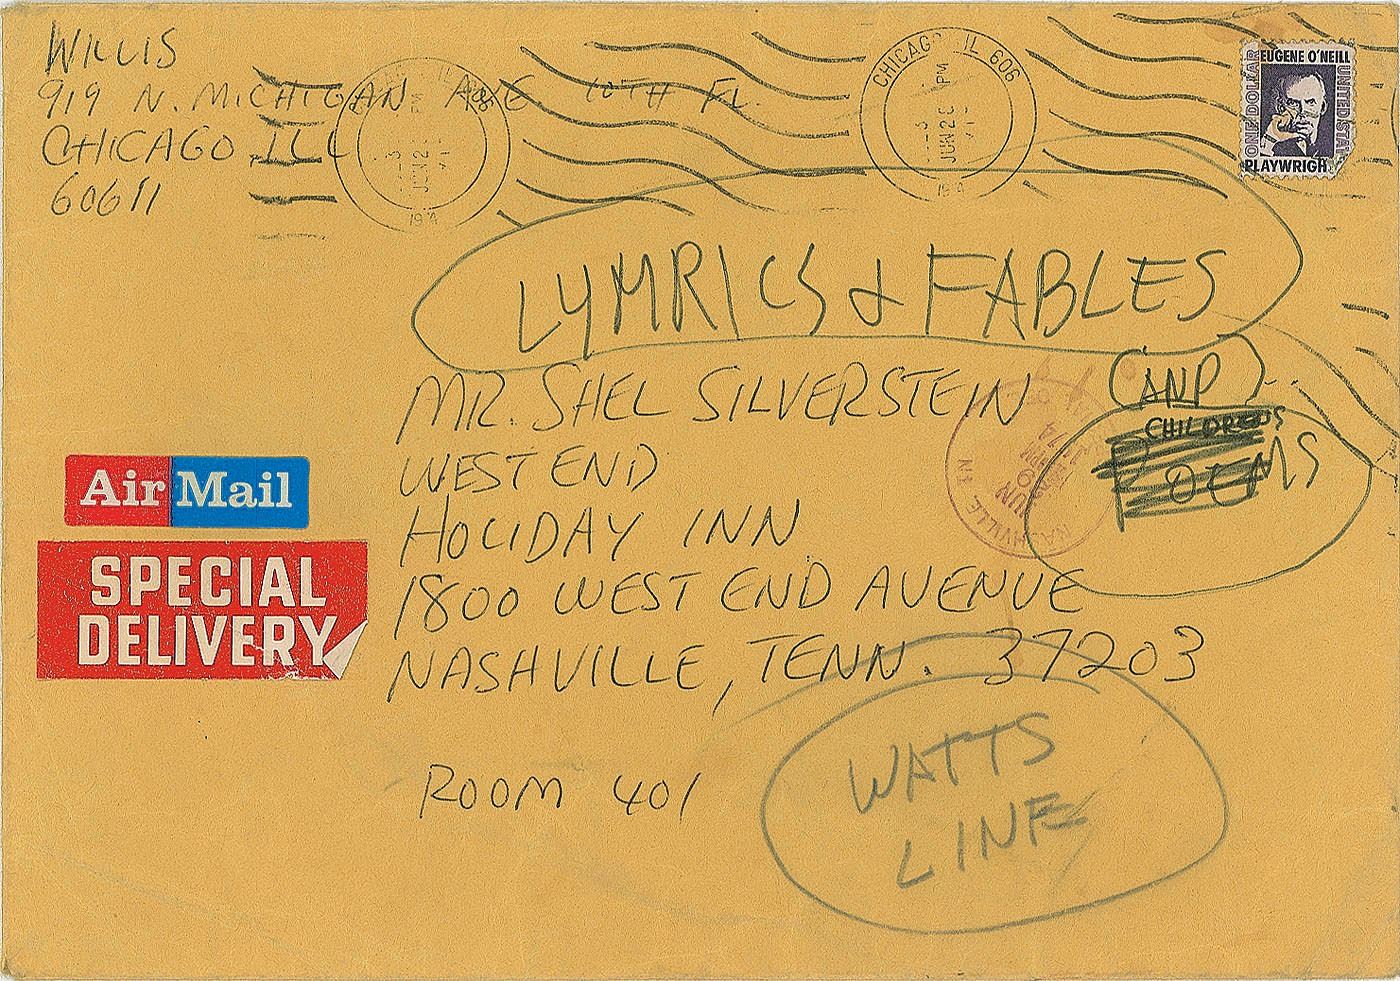 WILLIS
919 N. MICHIGAN AVE 10TH FL.
CHICAGO ILL
60611
CHICAGO IL 606
PM
JUN 28
CHICAGO IL 606
PM
JUN 28
ONE DOLLAR
EUGENE O'NEILL
UNITED STAT
PLAYWRIGH
LYMRICS & FABLES
(AND)
CHILDREN'S
POEMS
MR. SHEL SILVERSTEIN
WEST END
HOLIDAY INN
1800 WEST END AVENUE
NASHVILLE, TENN. 37203
ROOM 401
NASHVILLE TN
JUN
Air Mail
SPECIAL
DELIVERY
WATTS
LINE